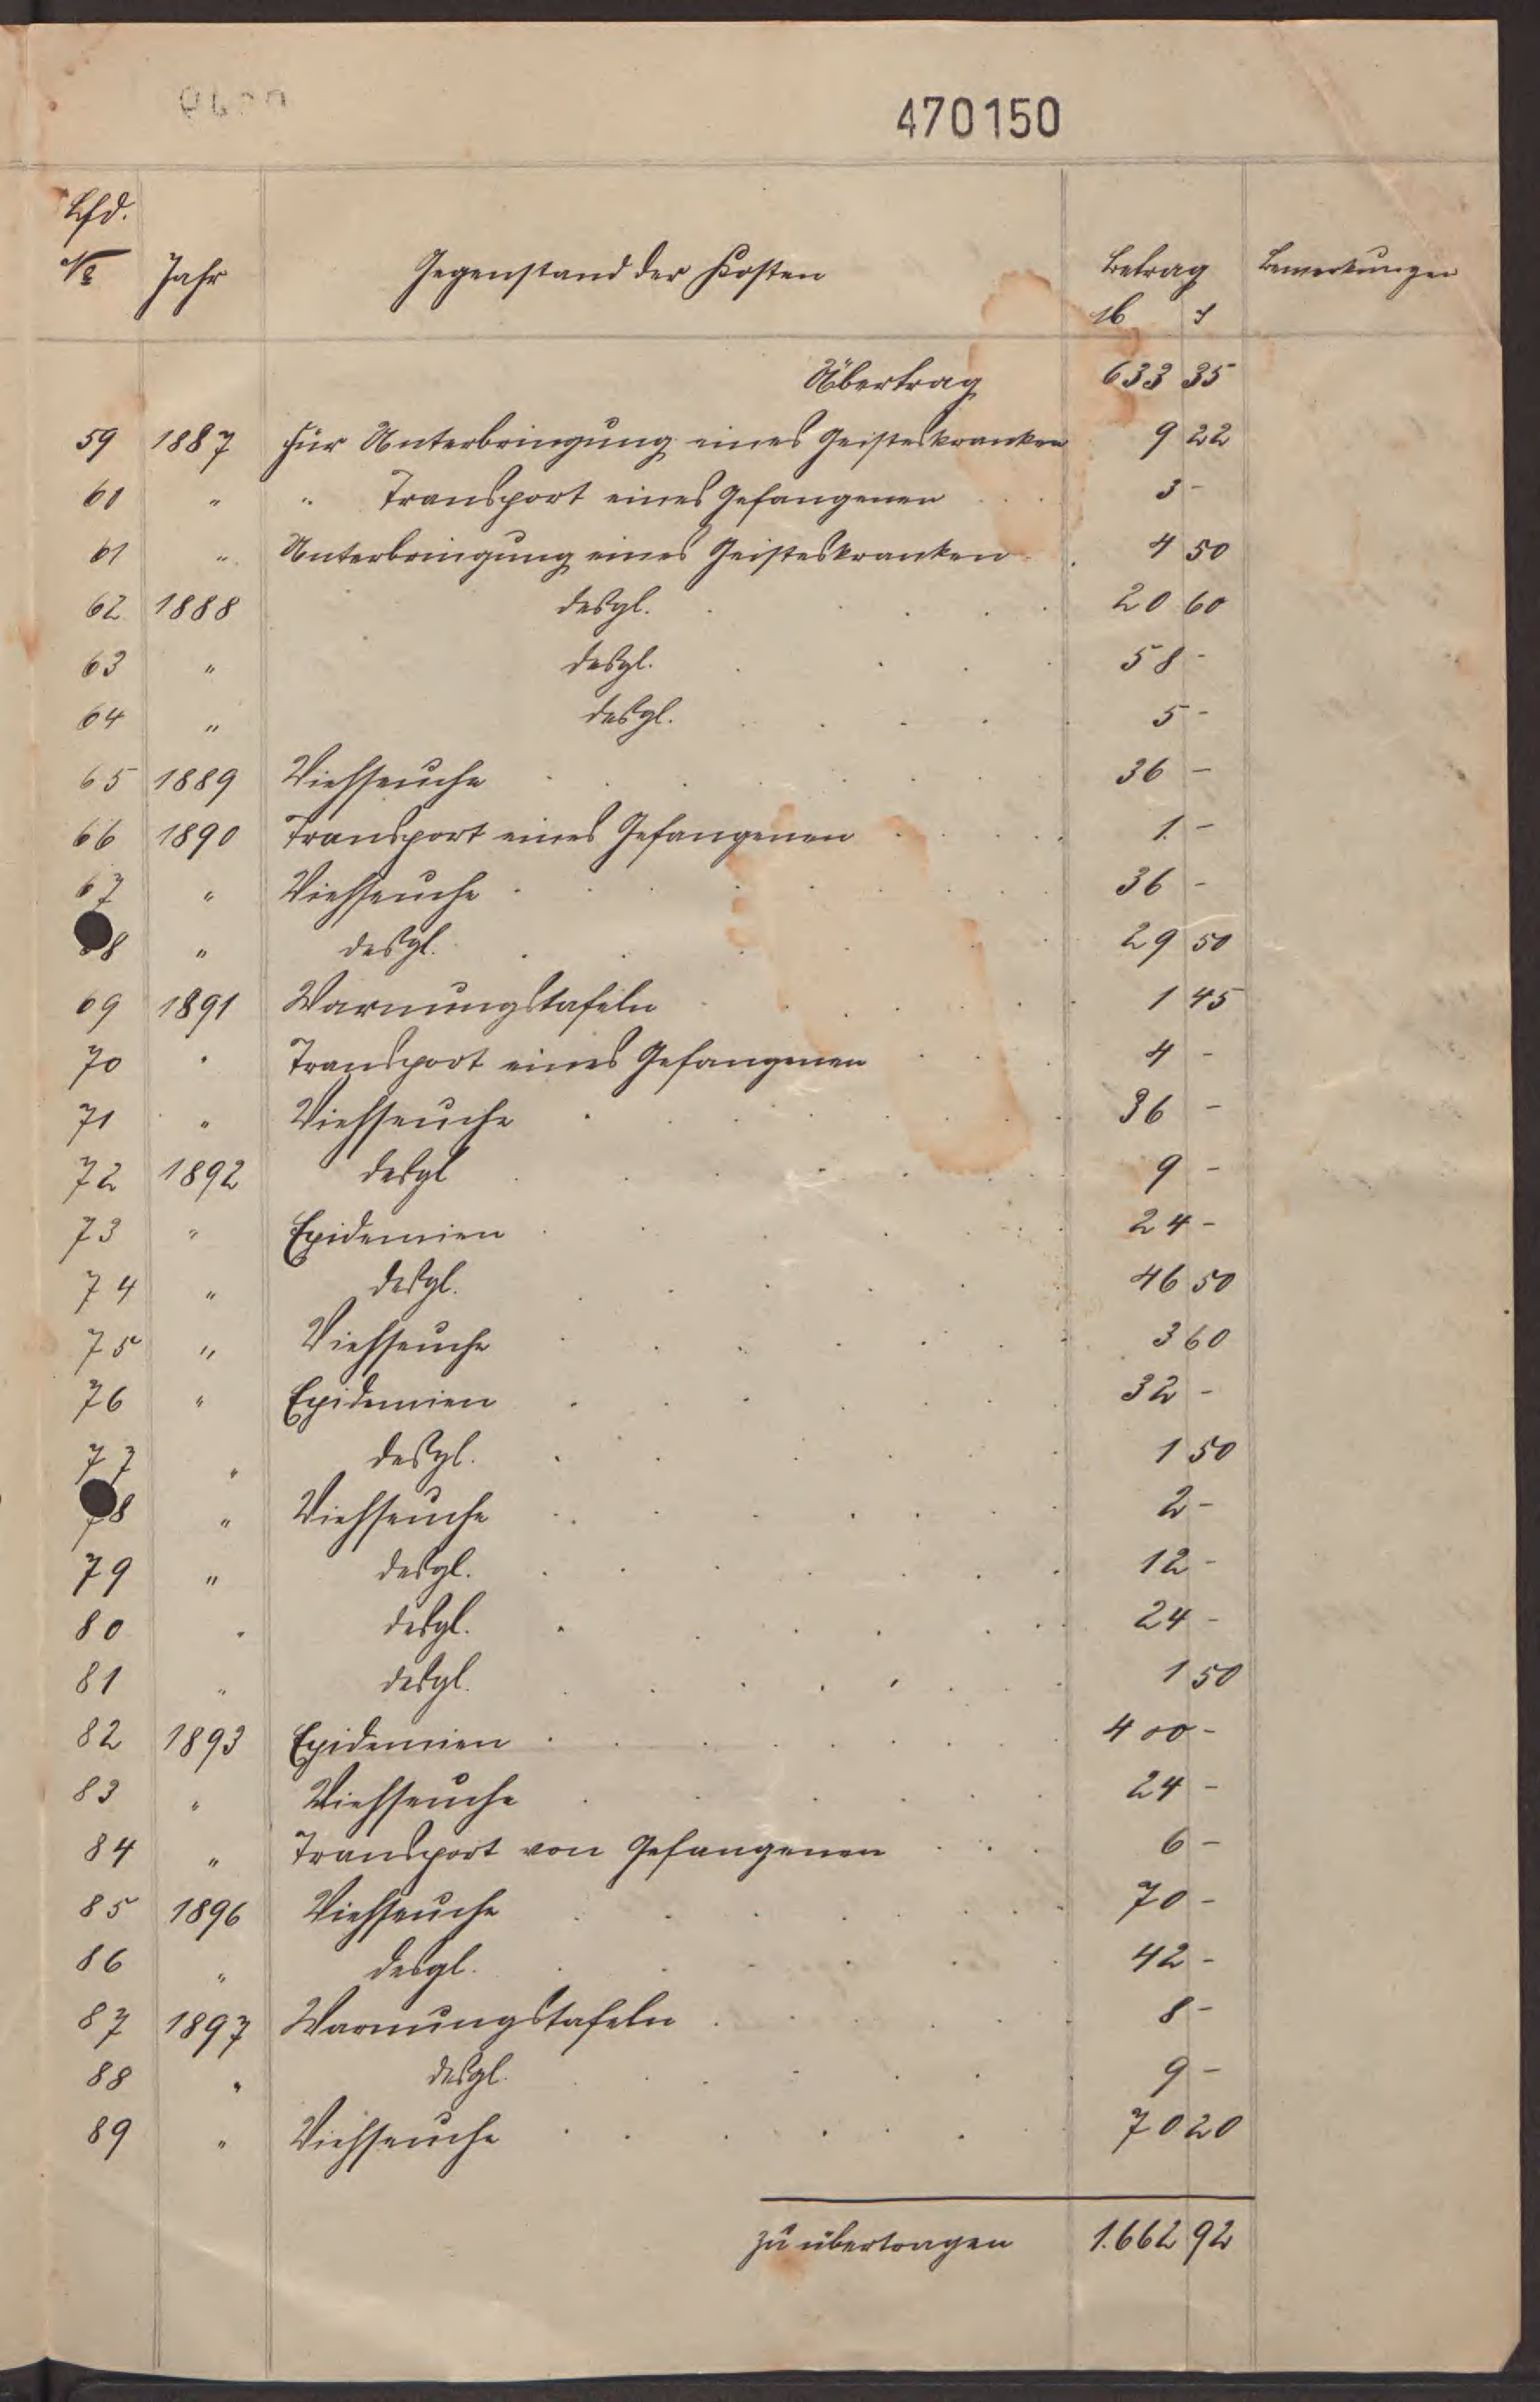 470150
Lfd.
№ Jahr Gegenstand der Kosten Betrag Bemerkungen
ℳ ₰
Übertrag 633 35
59 1887 Für Unterbringung eines Geisteskranken 9 22
60 " " Transport eines Gefangenen 3 -
61 " Unterbringung eines Geisteskranken 4 50
62 1888 desgl. 20 60
63 " desgl. 58 -
64 " desgl. 5 -
65 1889 Viehseuche 36 -
66 1890 Transport eines Gefangenen 1 -
67 " Viehseuche 36 -
68 " desgl. 29 50
69 1891 Warnungstafeln 1 45
70 " Transport eines Gefangenen 4 -
71 " Viehseuche 36 -
72 1892 desgl 9 -
73 " Epidemien 24 -
74 " desgl. 46 50
75 " Viehseuche 3 60
76 " Epidemien 32 -
77 " desgl. 1 50
78 " Viehseuche 2 -
79 " desgl. 12 -
80 " desgl. 24 -
81 " desgl. 1 50
82 1893 Epidemien 400 -
83 " Viehseuche 24 -
84 " Transport von Gefangenen 6 -
85 1896 Viehseuche 70 -
86 " desgl. 42 -
87 1897 Warnungstafeln 8 -
88 " desgl. 9 -
89 " Viehseuche 70 20
zu übertragen 1.662 92